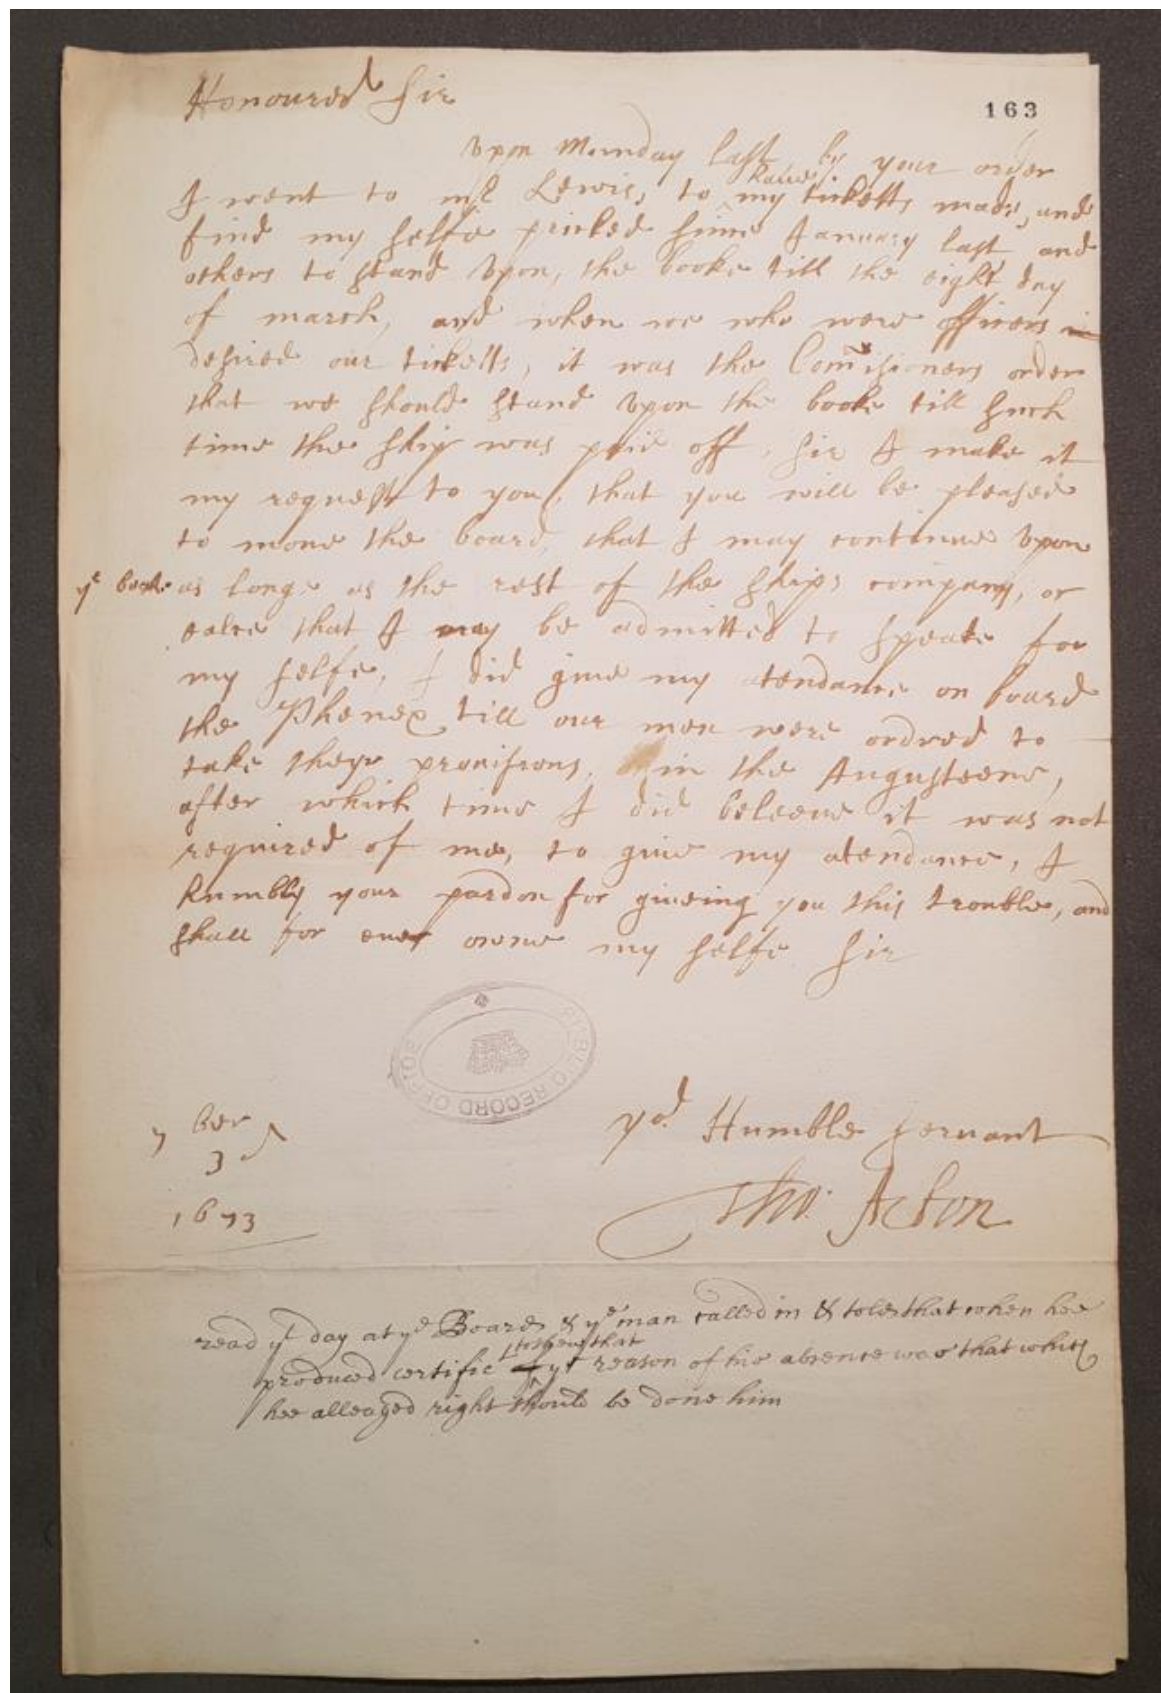 163
Honoured Sir
Vpon Munday last by your order
I went to mr Lewis, to haue my ticketts made, and
find my selfe pricked since January last and
others to stand Vpon, the booke till the eight day
of march, and when we who were officers
desired our ticketts, it was the Comissioners order
that we should stand Vpon the booke till such
time the ship was paid off. Sir I make it
my request to you, that you will be pleased
to moue the board, that I may continue Vpon
ye booke as longe as the rest of the ships company, or
ealce that I may be admitted to speake for
my selfe, I did giue my atendance on board
the Phenex till our men were ordred to
take theyr prouisions, in the Augusteene,
after which time I did beleeue it was not
required of me, to giue my atendance, I
humbly your pardon for giueing you this trouble, and
shall for euer owne my selfe Sir
PUBLIC RECORD OFFICE
yor Humble seruant
Tho: Acton
7 ber
3
1673
read yt day at ye Board & ye man called in & told that when hee
produced certific to shew that yt reason of his absence was that which
hee alleaged right should be done him